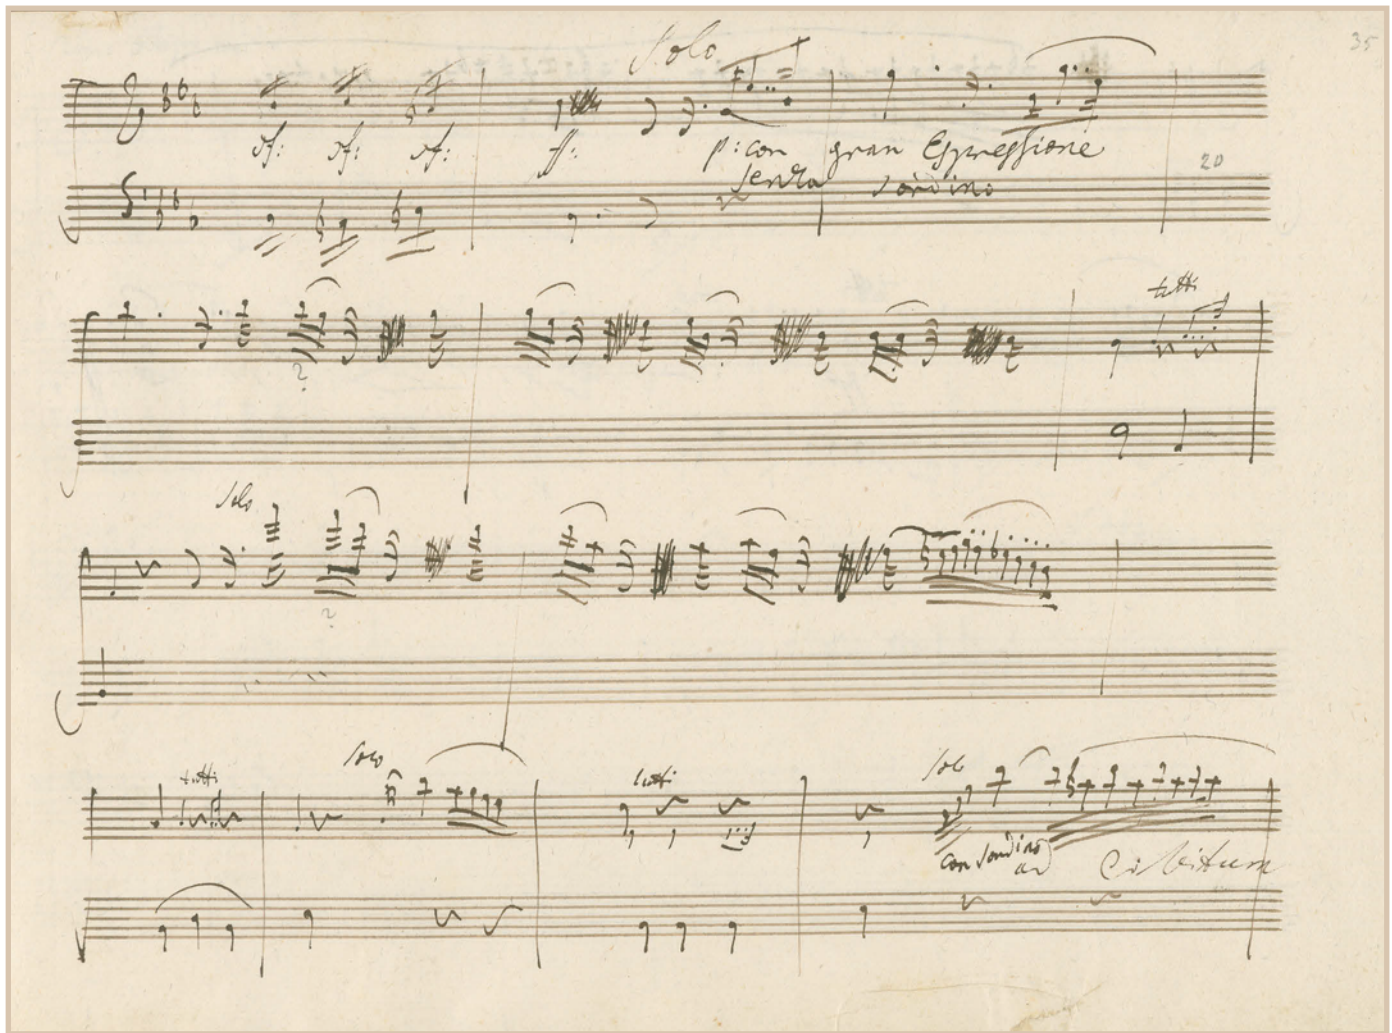 35
Solo
sf: sf: sf: ff: p: con gran Espressione
senza sordino
20
tutti
?
Solo
?
tutti Solo tutti Solo
con sordino
ad libitum